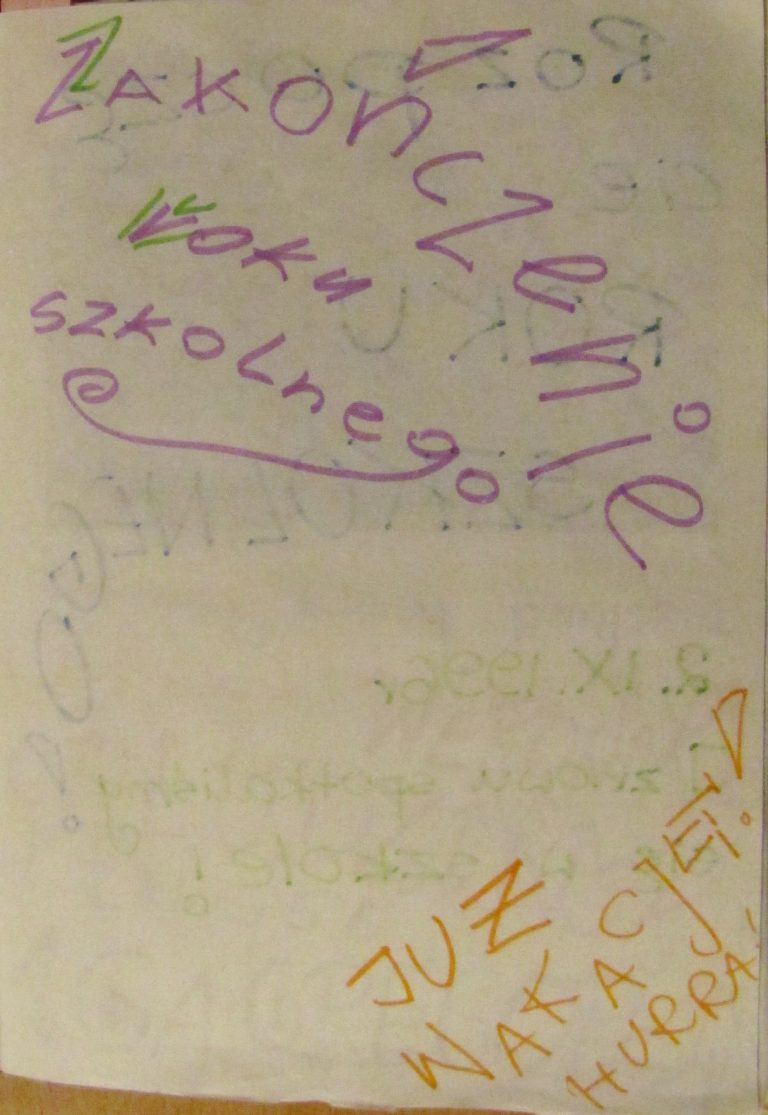 Zakończenie
roku
szkolnego
JUŻ
WAKACJE!
HURRA!
ROZPOCZĘ
CIE
ROKU
SZKOLNEGO!
2.IX.1996r.
I znowu spotkaliśmy
się w szkole!